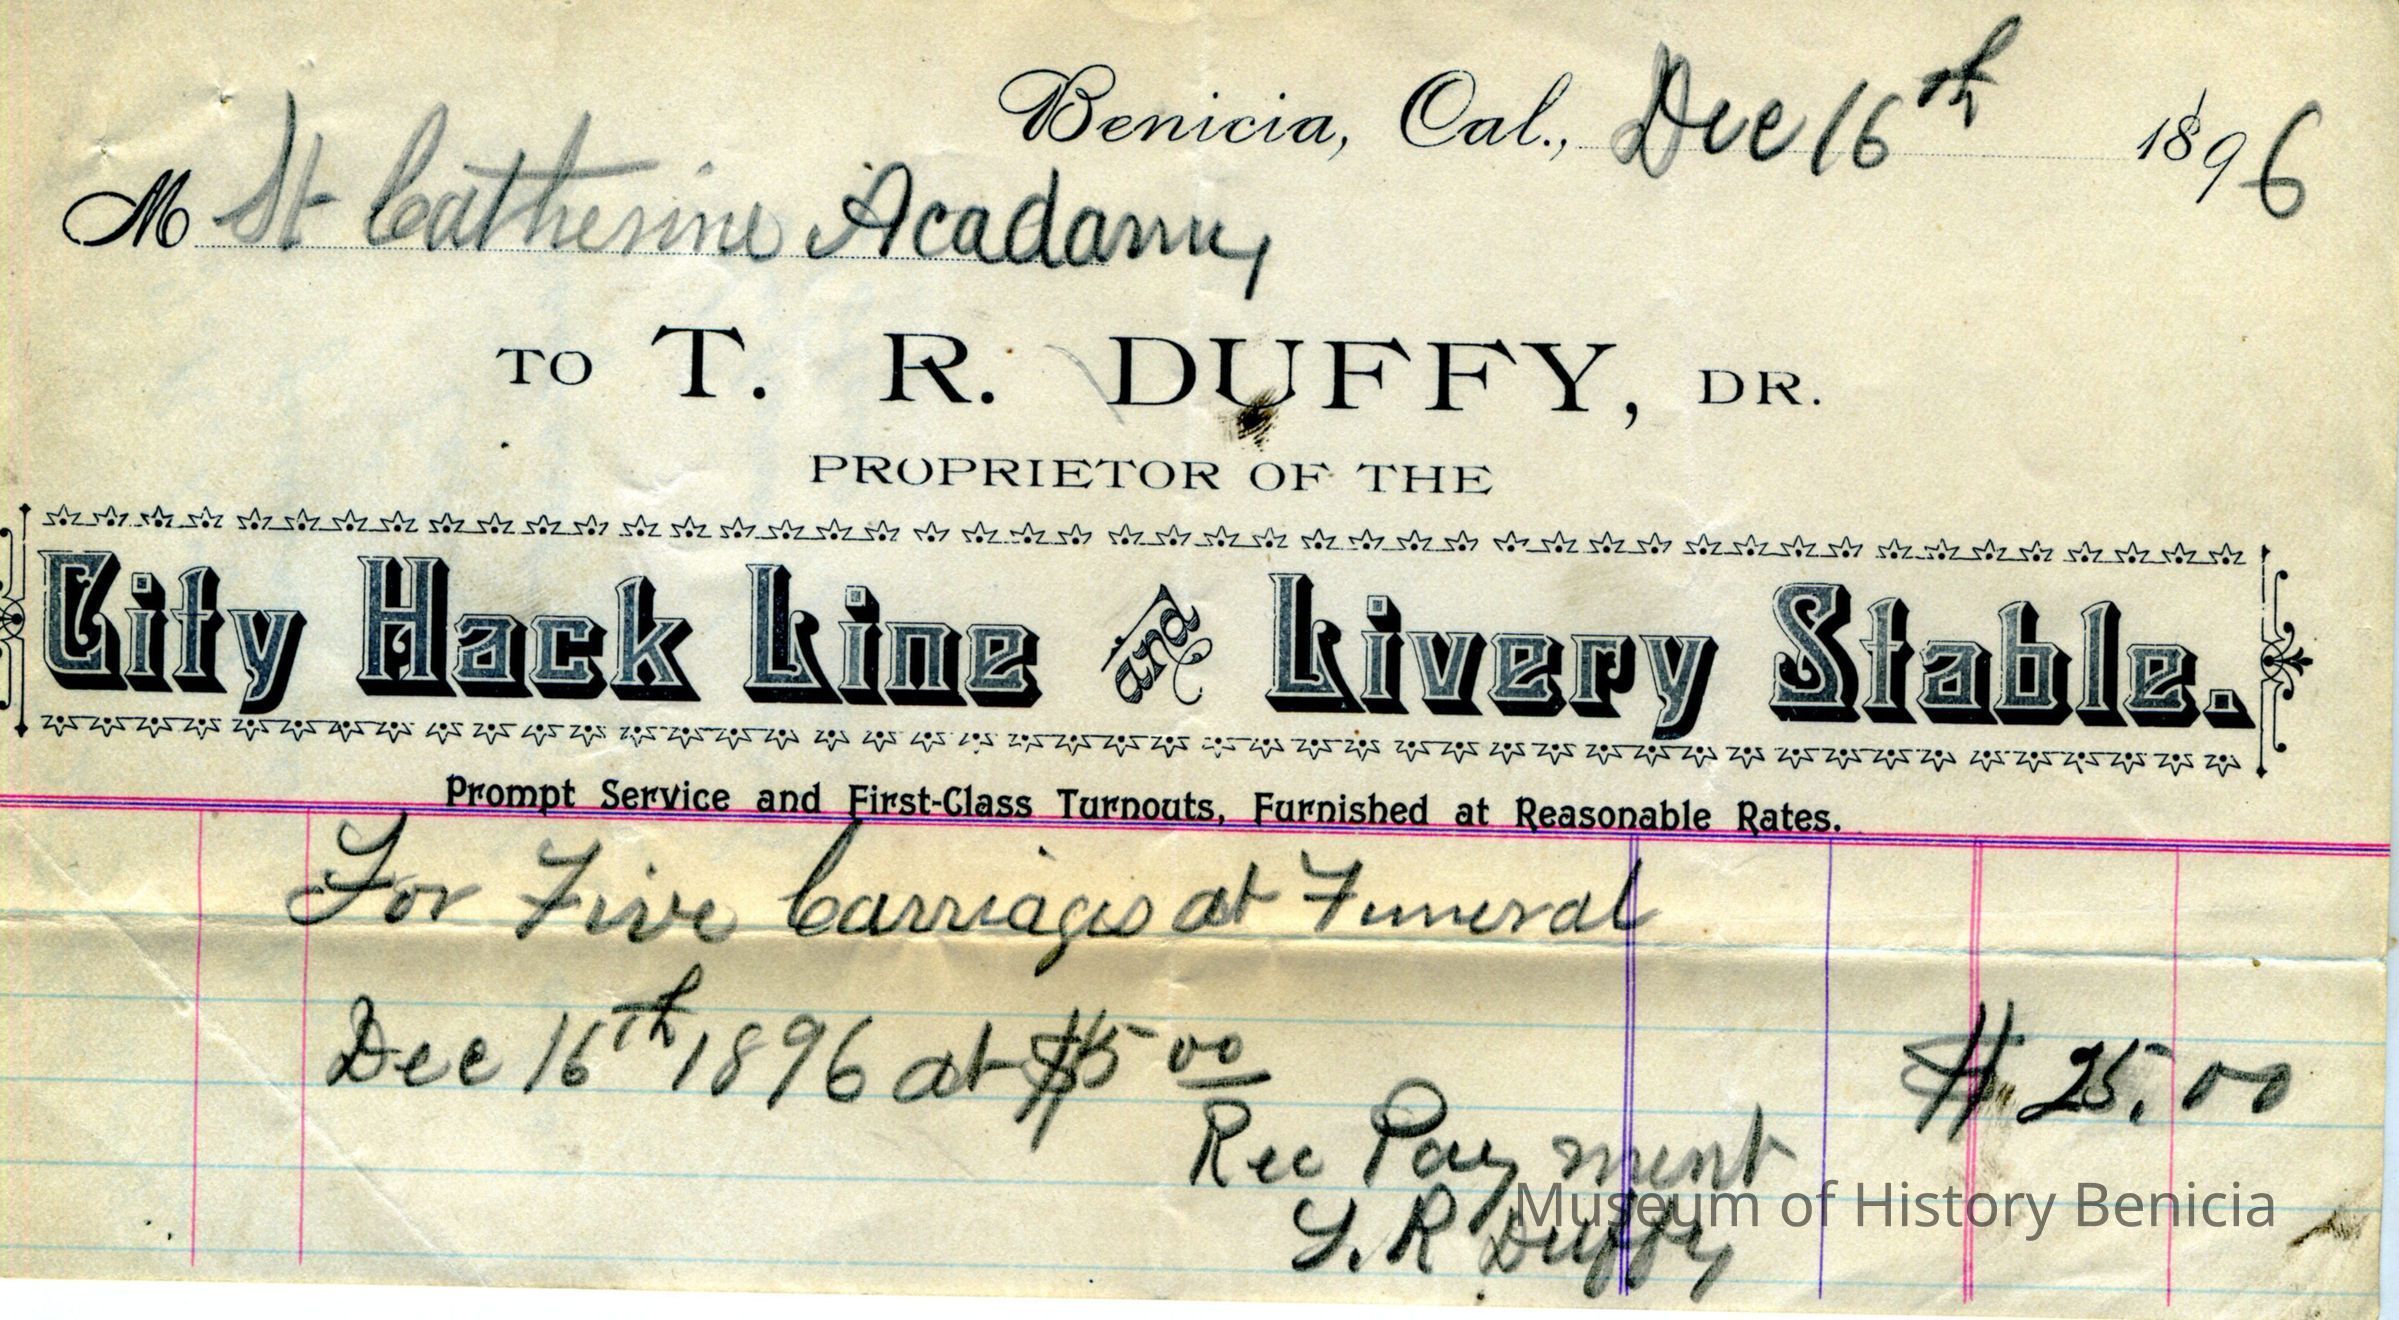 Benicia, Cal., Dec 16th 1896
M St Catherine Acadamy
TO T. R. DUFFY, DR.
PROPRIETOR OF THE
City Hack Line and Livery Stable.
Prompt Service and First-Class Turnouts, Furnished at Reasonable Rates.
For Five Carriages at Funeral
Dec 16th 1896 at $5 00 $25.00
Rec Payment
T. R Duffy
Museum of History Benicia